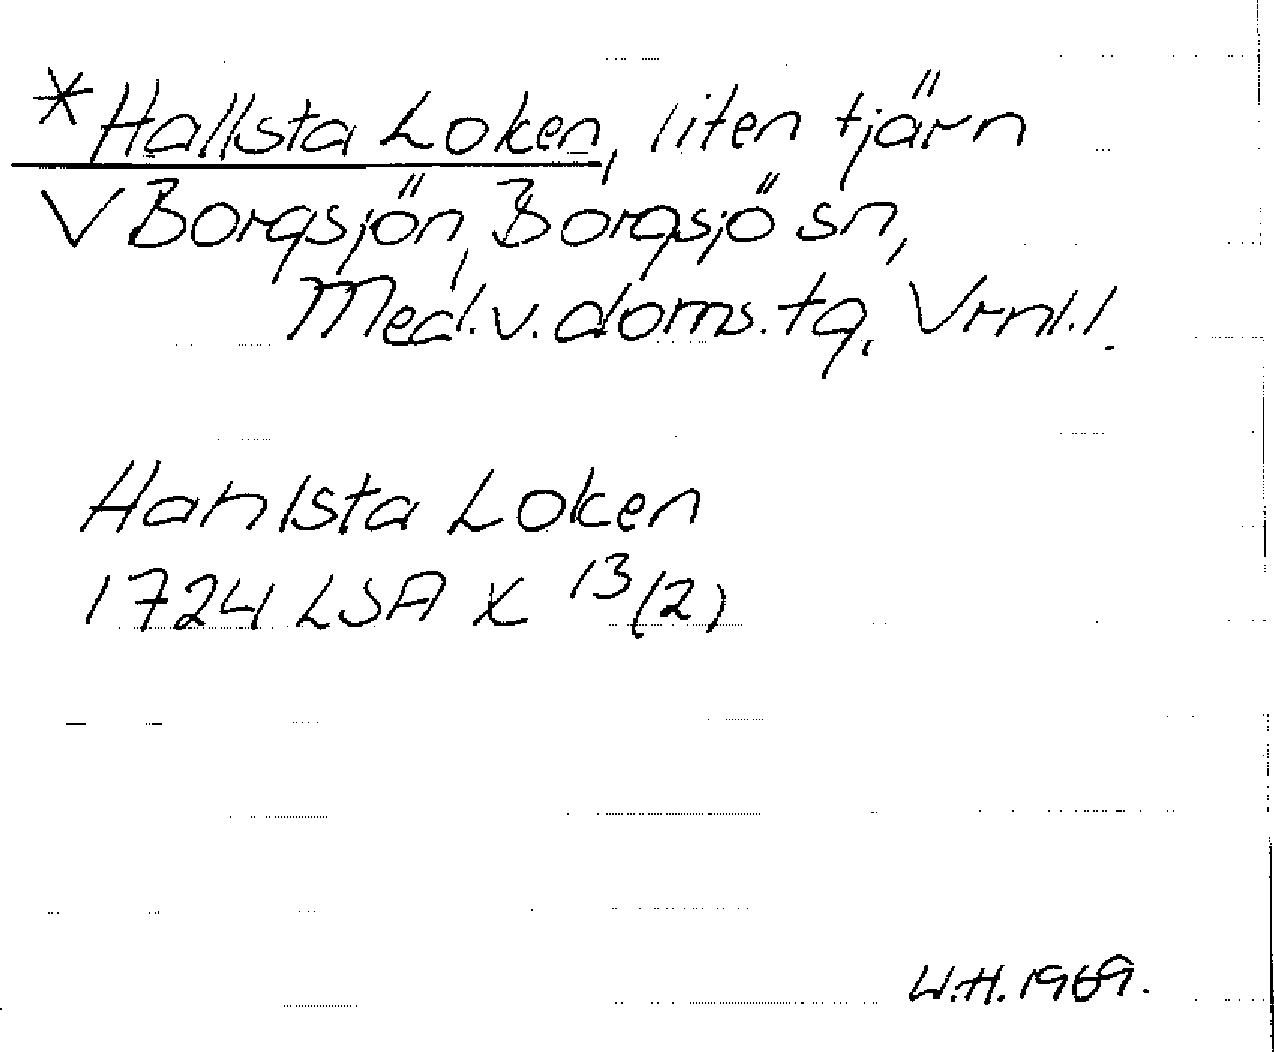 *Hallsta Loken, liten tjärn
V Borgsjön, Borgsjö sn,
Med.v.doms.tg, Vrnl.l.
Hahlsta Loken
1724 LSA X 13/(2)
W.H. 1969.